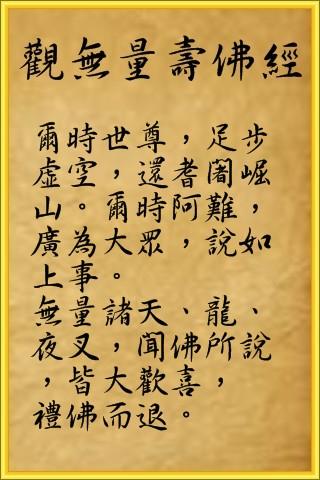 觀無量壽佛經
爾時世尊，足步
虛空，還耆闍崛
山。爾時阿難，
廣為大眾，說如
上事。
無量諸天、龍、
夜叉，聞佛所說
，皆大歡喜，
禮佛而退。